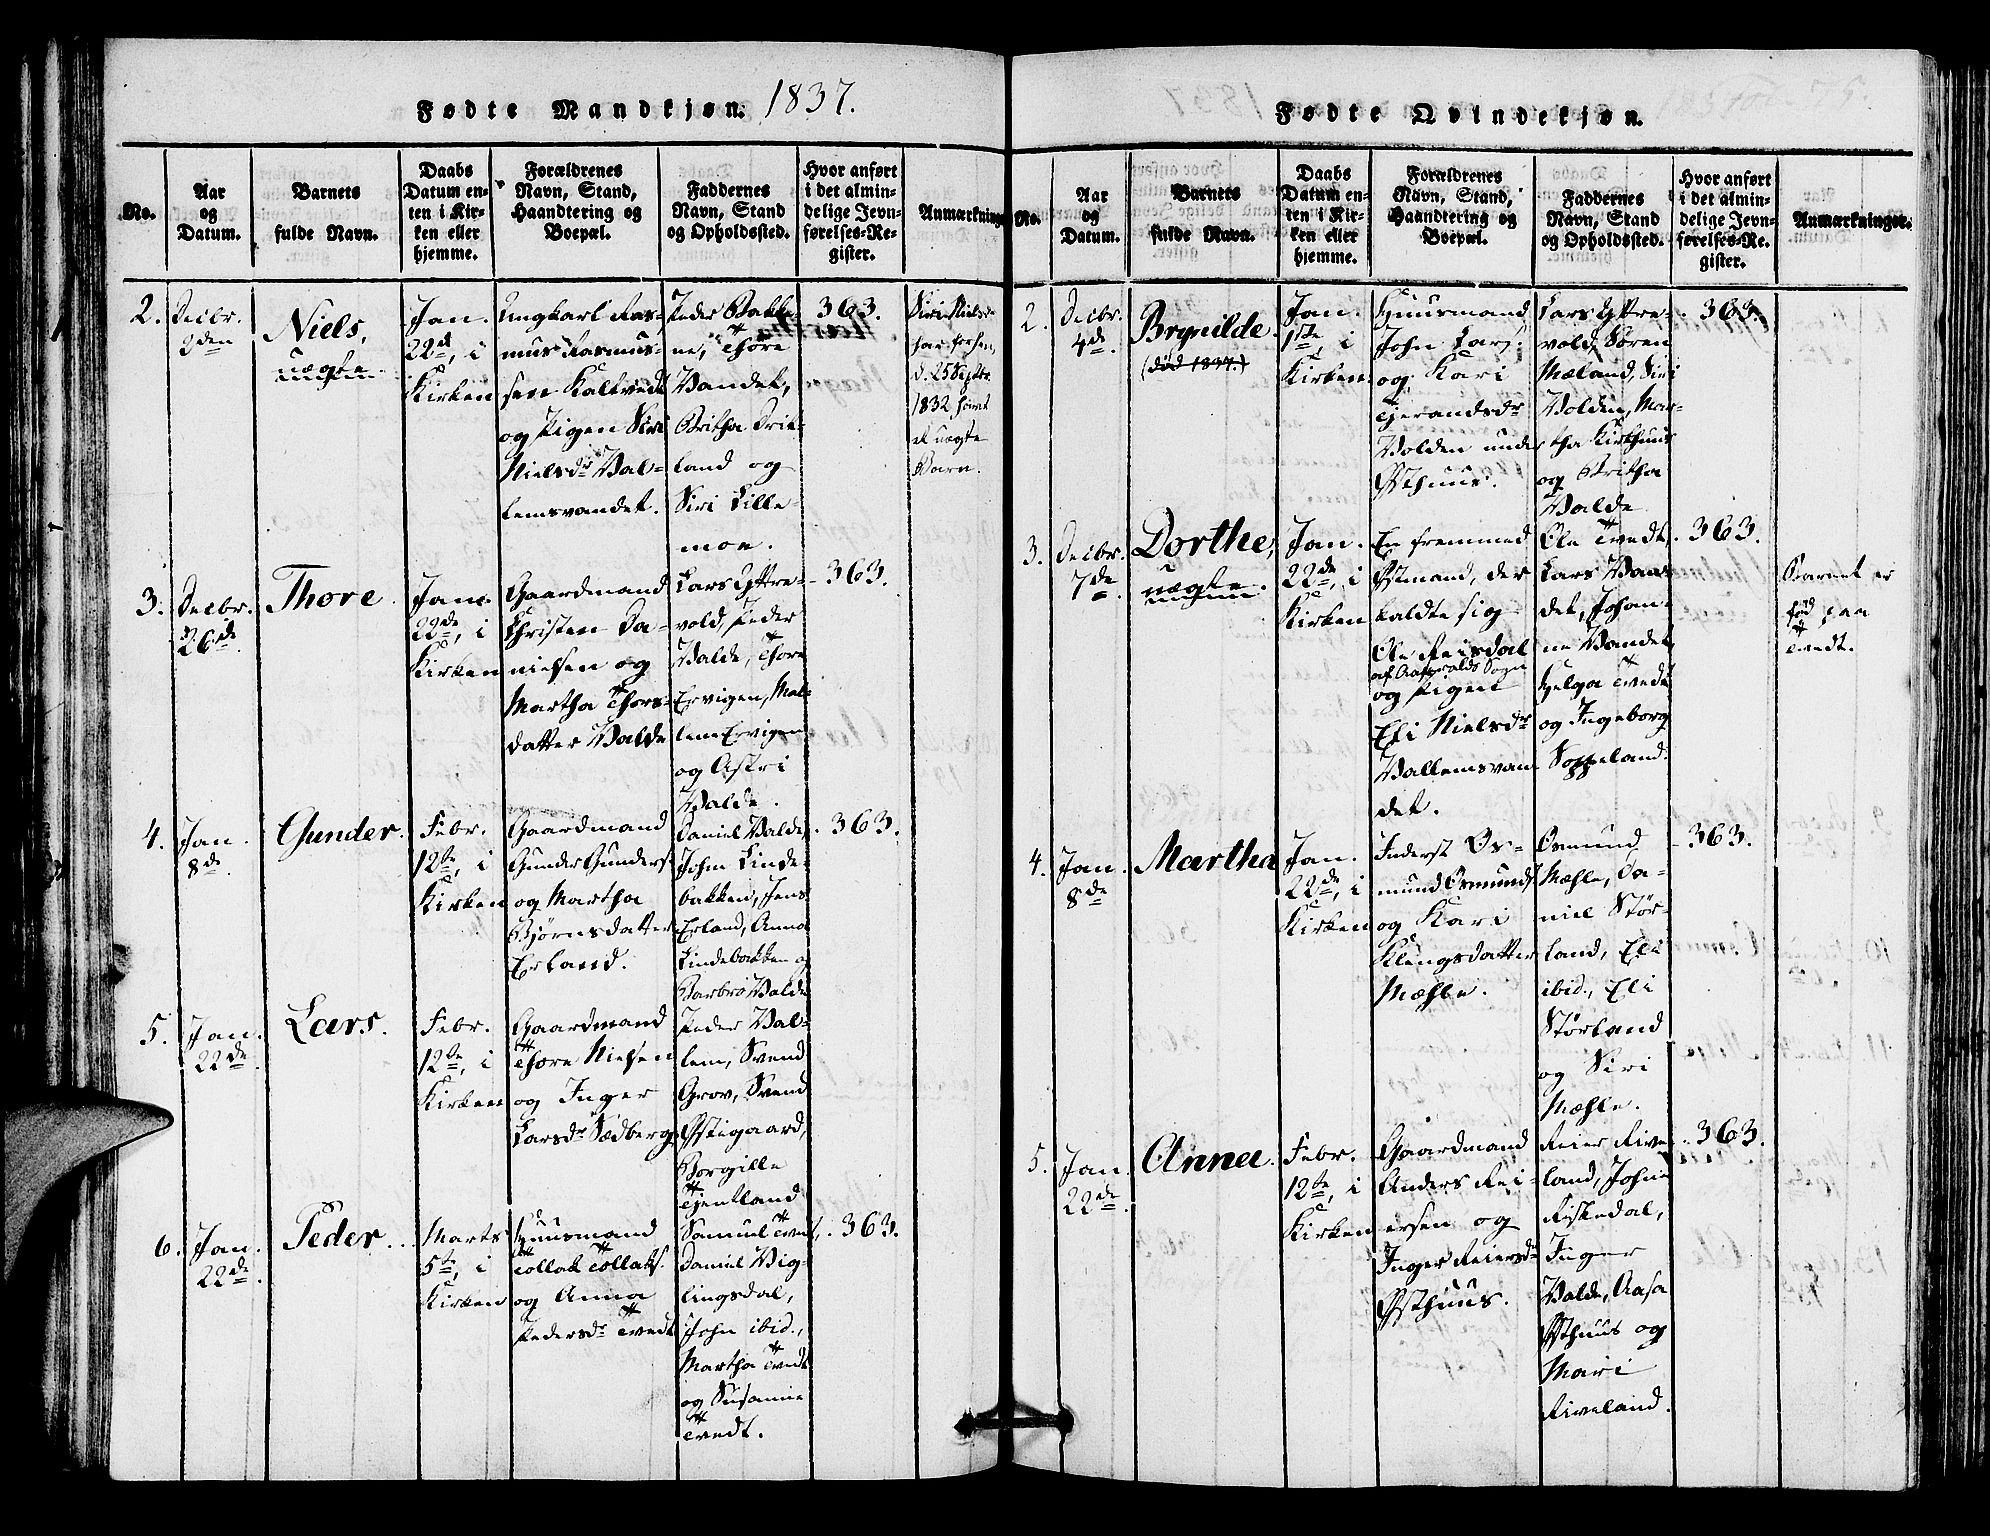 Fødte Mandkjøn. 1837.
No.
Aar
og
Datum.
Barnets
fulde Navn.
Daabs
Datum en-
ten i Kir-
ken eller
hjemme.
Forældrenes
Navn, Stand,
Haandtering og
Boepæl.
Faddernes
Navn, Stand
og Opholdssted.
Hvor anført
i det almin-
delige Jevn-
førelses-Re-
gister.
Anmærkninge
2.
Decbr.
2den
Niels,
uægte.
Jan.
22de, i
Kirken
Ungkarl Ras-
mus Rasmus-
sen Kaltvedt
og Pigen Siri
Nielsdr Val-
lemsvandet.
Peder Bakke-
ne, Thore
Vandet,
Britha Drit-
land og
Siri Lille-
moe.
363.
Siri Nielsdr
har forhen,
d. 25 Septbr.
1832, havet
et uægte
Barn.
3.
Decbr.
26de.
Thore.
Jan.
22de, i
Kirken
Gaardmand
Christen Da-
nielsen og
Martha Thors-
datter Valde
Lars Yttre-
vold, Peder
Valde, Thore
Ervigen, Mal-
lene Ervigen
og Astri
Valde.
363.
4.
Jan.
8de.
Gunder.
Febr.
12te, i
Kirken
Gaardmand
Gunder Gunders.
og Martha
Bjørnsdatter
Erland.
Daniel Valde,
John Linde-
bakken, Jens
Erland, Anna
Lindebakken og
Barbro Valde
363.
5.
Jan.
22de
Lars.
Febr.
12te, i
Kirken
Gaardmand
Thore Nielsen
og Inger
Larsdr Sædberg
Peder Val-
lem, Svend
Grov, Svend
Østigaard,
Borgille
Tjentland
6.
Jan.
22de.
Peder.
Marts
5te, i
Kirken
Huusmand
Tollak Tollaks.
og Anna
Pedersdr Tvedt
Samuel Tvedt,
Daniel Vig-
lingsdal,
John ibid.,
Martha Tvedt
og Susanne
Tvedt.
363.
Fødte Qvindekjøn.
No.
Aar
og
Datum.
Barnets
fulde Navn.
Daabs
Datum en-
ten i Kir-
ken eller
hjemme.
Forældrenes
Navn, Stand,
Haandtering og
Boepæl.
Faddernes
Navn, Stand
og Opholdssted.
Hvor anført
i det almin-
delige Jevn-
førelses-Re-
gister.
Anmærkninger.
2.
Decbr.
4de.
Brynilde.
(død 1837.)
Jan.
1ste, i
Kirken.
Huusmand
John Lars.
og Kari
Tjerandsdr
Volden under
Østhuus.
Lars Yttre-
vold, Søren
Mæland, Siri
Volden, Mar-
tha Kirkhuus
og Britha
Valde
363.
3.
Decbr.
7de.
Dorthe,
uægte.
Jan.
22de, i
Kirken
En fremmed
Østmand, der
kaldte sig
Ole Reisdal
af Aaseralds Sogn
og Pigen
Eli Nielsdr
Vallemsvan-
det.
Ole Tvedt,
Lars Van-
det, Johan-
ne Vandet,
Helga Tvedt
og Ingeborg
Soppeland.
363.
Barnet er
fød paa
Tvedt.
4.
Jan.
8de
Martha
Jan.
22de, i
Kirken
Inderst Os-
mund Osmunds.
og Kari
Klengsdatter
Mæhle.
Osmund
Mæhle, Da-
niel Stør-
land, Eli
ibid., Eli
Størland
og Siri
Mæhle.
363.
5.
Jan.
22de.
Anna.
Febr.
12te, i
Kirken
Gaardmand
Anders Rei-
ersen og
Inger Reiersdr
Østhuus.
Reier Rive-
land, John
Riskedal,
Inger
Valde, Aasa
Østhuus og
Mari
Riveland.
363.